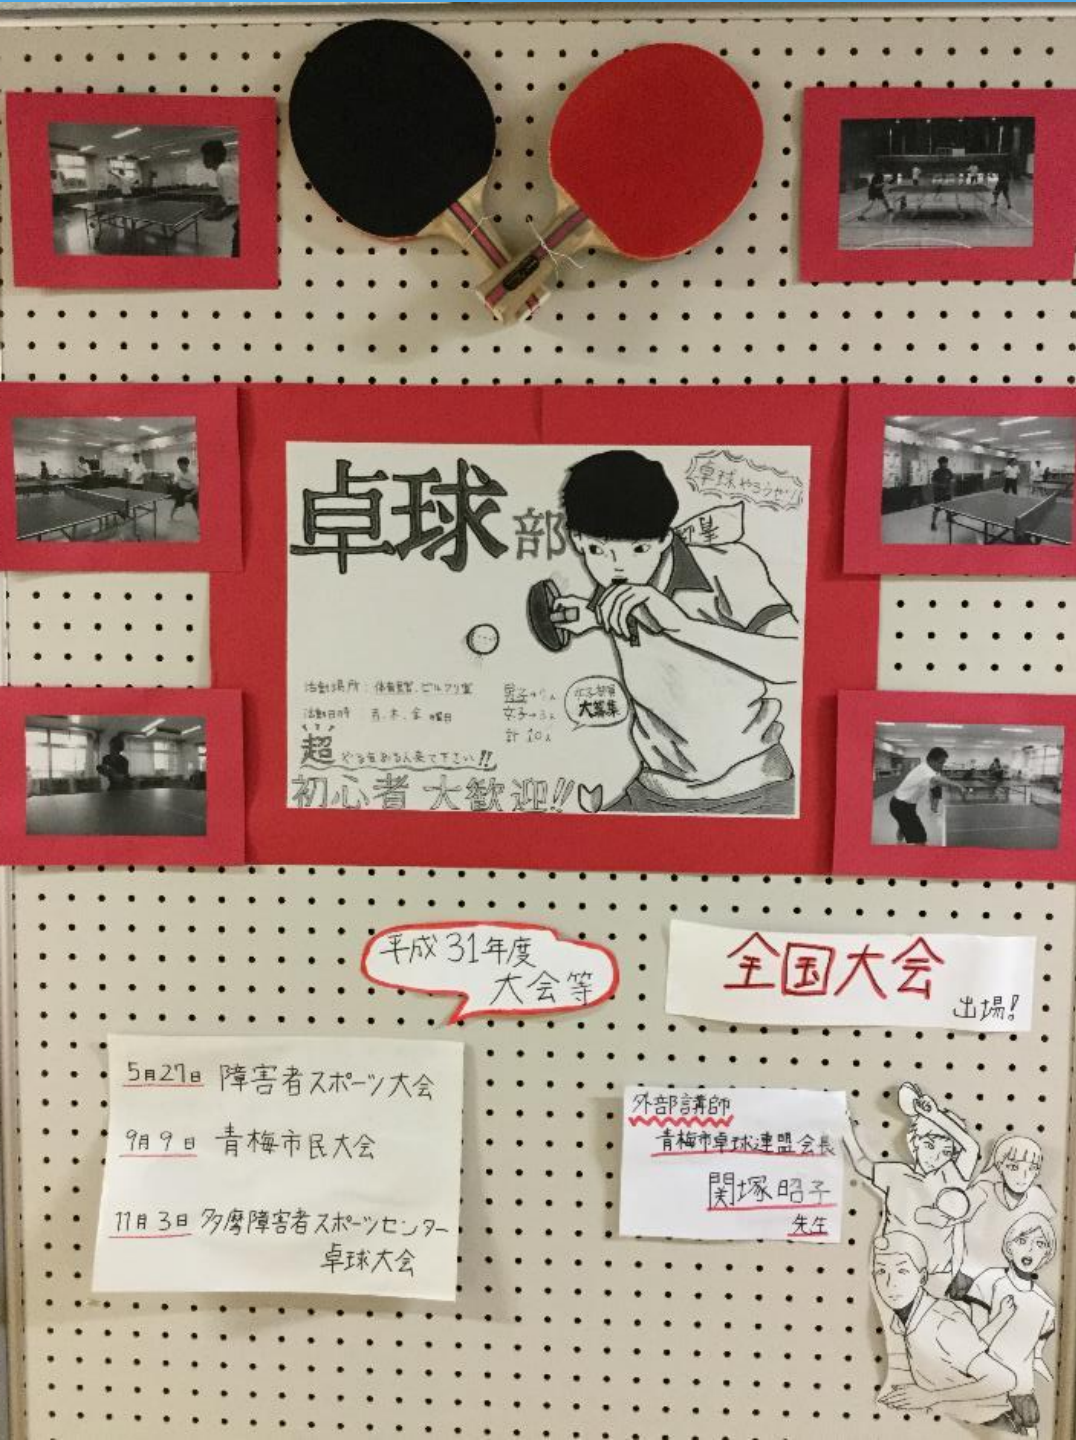 卓球部
卓球やろうぜ!!
活動場所:体育館、ピロプリ室
活動日時 月、木、金曜日
男子→7人
女子→3人
計10人
女子部員
大募集
超やる気ある人来て下さい!!
初心者大歓迎!!
平成31年度
大会等
全国大会
出場!
5月27日 障害者スポーツ大会
9月9日 青梅市民大会
11月3日 多摩障害者スポーツセンター
卓球大会
外部講師
青梅市卓球連盟会長
関塚昭子
先生